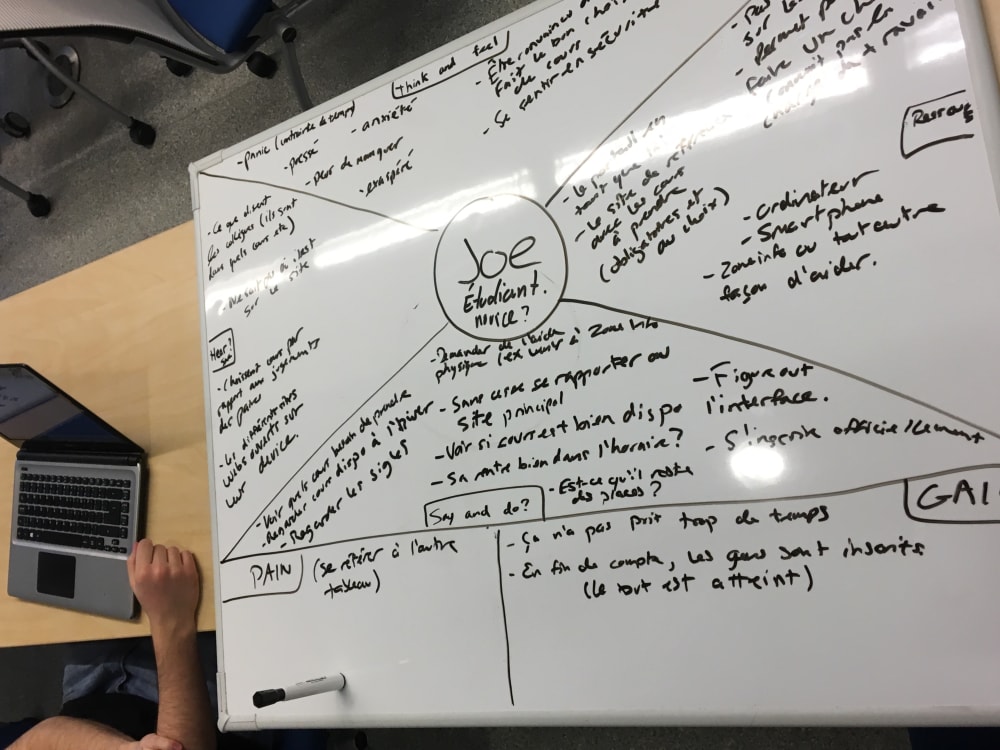 think and feel
- panic (contrainte de temps)
- pressé
- anxiété
- peur de manquer
- exaspéré
- Être convaincu d
faire le bon choix
de cours
- Se sentir en sécurité
sur les
- Permet
faire un ch
connait pas la
charge de travail
Ressources
- Le portail en
tant que
- Le site de référence
avec les cours
à prendre
(obligatoires et
au choix)
- ordinateur
- Smartphone
- Zone info ou tout autre
façon d'aider.
JOE
Étudiant.
novice?
- Ce que disent
les collègues (ils sont
dans quels cours etc)
? Ne sait pas où c'est
sur le site
Hear?
See
- Choisisent cours par
rapport aux jugements
des pairs
- Les différents sites
webs ouverts sur
leur device.
- Demander de l'aide
physique (ex venir à Zone Info
- Sans cesse se rapporter au
site principal
- Voir si cours est bien dispo
- Sa rentre bien dans l'horaire?
- Est-ce qu'il reste
des places?
- Figure out
l'interface.
- S'inscrire officiellement
- Voir quels cours besoin de prendre
- Demander cours dispo à l'hiver
- Regarder les sigles
Say and do?
PAIN
(se référer à l'autre
tableau)
GAI
- Ça n'a pas prit trop de temps
- En fin de compte, les gens sont inscrits
(le tout est atteint)